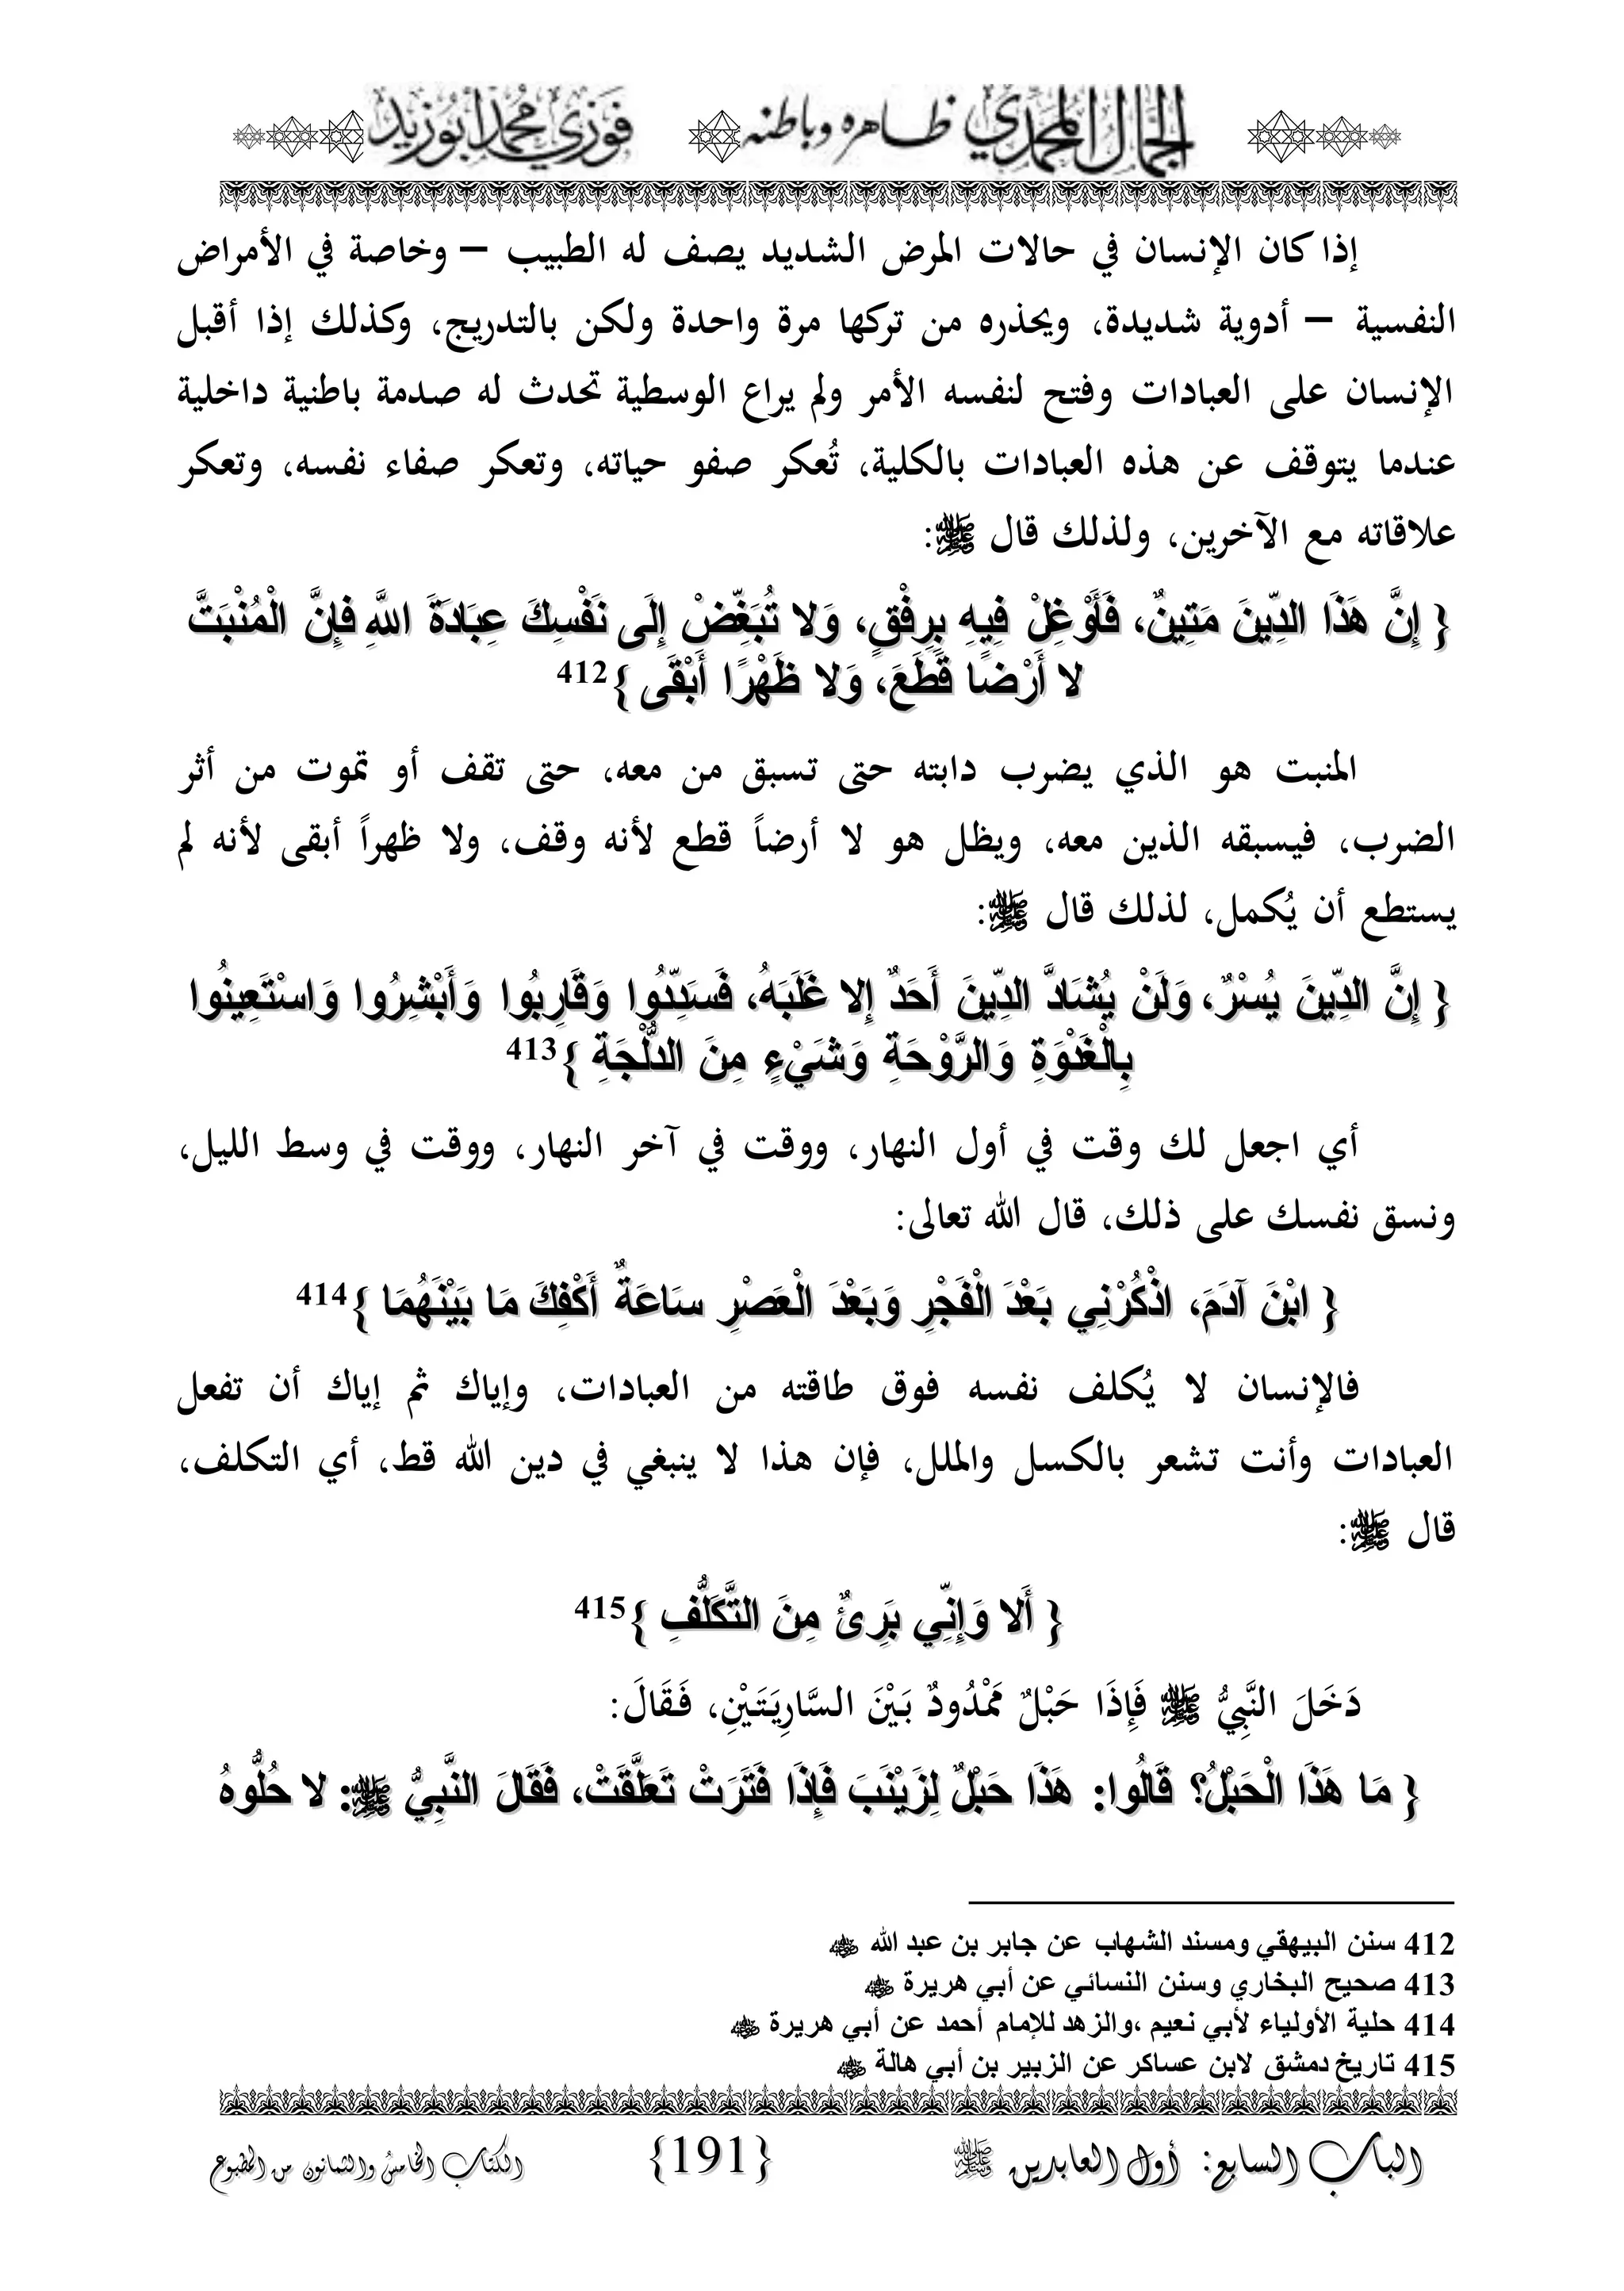 الجمال المحمدي ظاهره وباطنه فوزي محمد أبوزيد
إذا كان الإنسان في حالات المرض الشديد يصف له الطبيب – وخاصة في الأمراض
النفسية – أدوية شديدة، ويحذره من تركها مرة واحدة ولكن بالتدريج، وكذلك إذا أقبل
الإنسان على العبادات وفتح لنفسه الأمر ولم يراع الوسطية تحدث له صدمة باطنية داخلية
عندما يتوقف عن هذه العبادات بالكلية، تُعكر صفو حياته، وتعكر صفاء نفسه، وتعكر
علاقاته مع الآخرين، ولذلك قال ﷺ:
{ إِنَّ هَذَا الدِّينَ مَتِينٌ، فَأَوْغِلْ فِيهِ بِرِفْقٍ، وَلا تُبَغِّضْ إِلَى نَفْسِكَ عِبَادَةَ اللَّهِ فَإِنَّ الْمُنْبَتَّ
لا أَرْضًا قَطَعَ، وَلا ظَهْرًا أَبْقَى }412
المنبت هو الذي يضرب دابته حتى تسبق من معه، حتى تقف أو تموت من أثر
الضرب، فيسبقه الذين معه، ويظل هو لا أرضاً قطع لأنه وقف، ولا ظهراً أبقى لأنه لم
يستطع أن يُكمل، لذلك قال ﷺ:
{ إِنَّ الدِّينَ يُسْرٌ، وَلَنْ يُشَادَّ الدِّينَ أَحَدٌ إِلا غَلَبَهُ، فَسَدِّدُوا وَقَارِبُوا وَأَبْشِرُوا وَاسْتَعِينُوا
بِالْغَدْوَةِ وَالرَّوْحَةِ وَشَيْءٍ مِنَ الدُّلْجَةِ }413
أي اجعل لك وقت في أول النهار، ووقت في آخر النهار، ووقت في وسط الليل،
ونسق نفسك على ذلك، قال الله تعالى:
{ ابْنَ آدَمَ، اذْكُرْنِي بَعْدَ الْفَجْرِ وَبَعْدَ الْعَصْرِ سَاعَةٌ أَكْفِكَ مَا بَيْنَهُمَا }414
فالإنسان لا يُكلف نفسه فوق طاقته من العبادات، وإياك ثم إياك أن تفعل
العبادات وأنت تشعر بالكسل والملل، فإن هذا لا ينبغي في دين الله قط، أي التكلف،
قال ﷺ:
{ أَلا وَإِنِّي بَرِئٌ مِنَ التَّكَلُّفِ }415
دَخَلَ النَّبِيُّ ﷺ فَإِذَا حَبْلٌ مَمْدُودٌ بَيْنَ السَّارِيَتَيْنِ، فَقَالَ:
{ مَا هَذَا الْحَبْلُ؟ قَالُوا: هَذَا حَبْلٌ لِزَيْنَبَ فَإِذَا فَتَرَتْ تَعَلَّقَتْ، فَقَالَ النَّبِيُّ ﷺ: لا حُلُّوهُ
412 سنن البيهقي ومسند الشهاب عن جابر بن عبد الله
413 صحيح البخاري وسنن النسائي عن أبي هريرة
414 حلية الأولياء لأبي نعيم ،والزهد للإمام أحمد عن أبي هريرة
415 تاريخ دمشق لابن عساكر عن الزبير بن أبي هالة
الباب السابع: أول العابدين ﷺ {191} الكتاب الخامس والثمانون من المطبوع